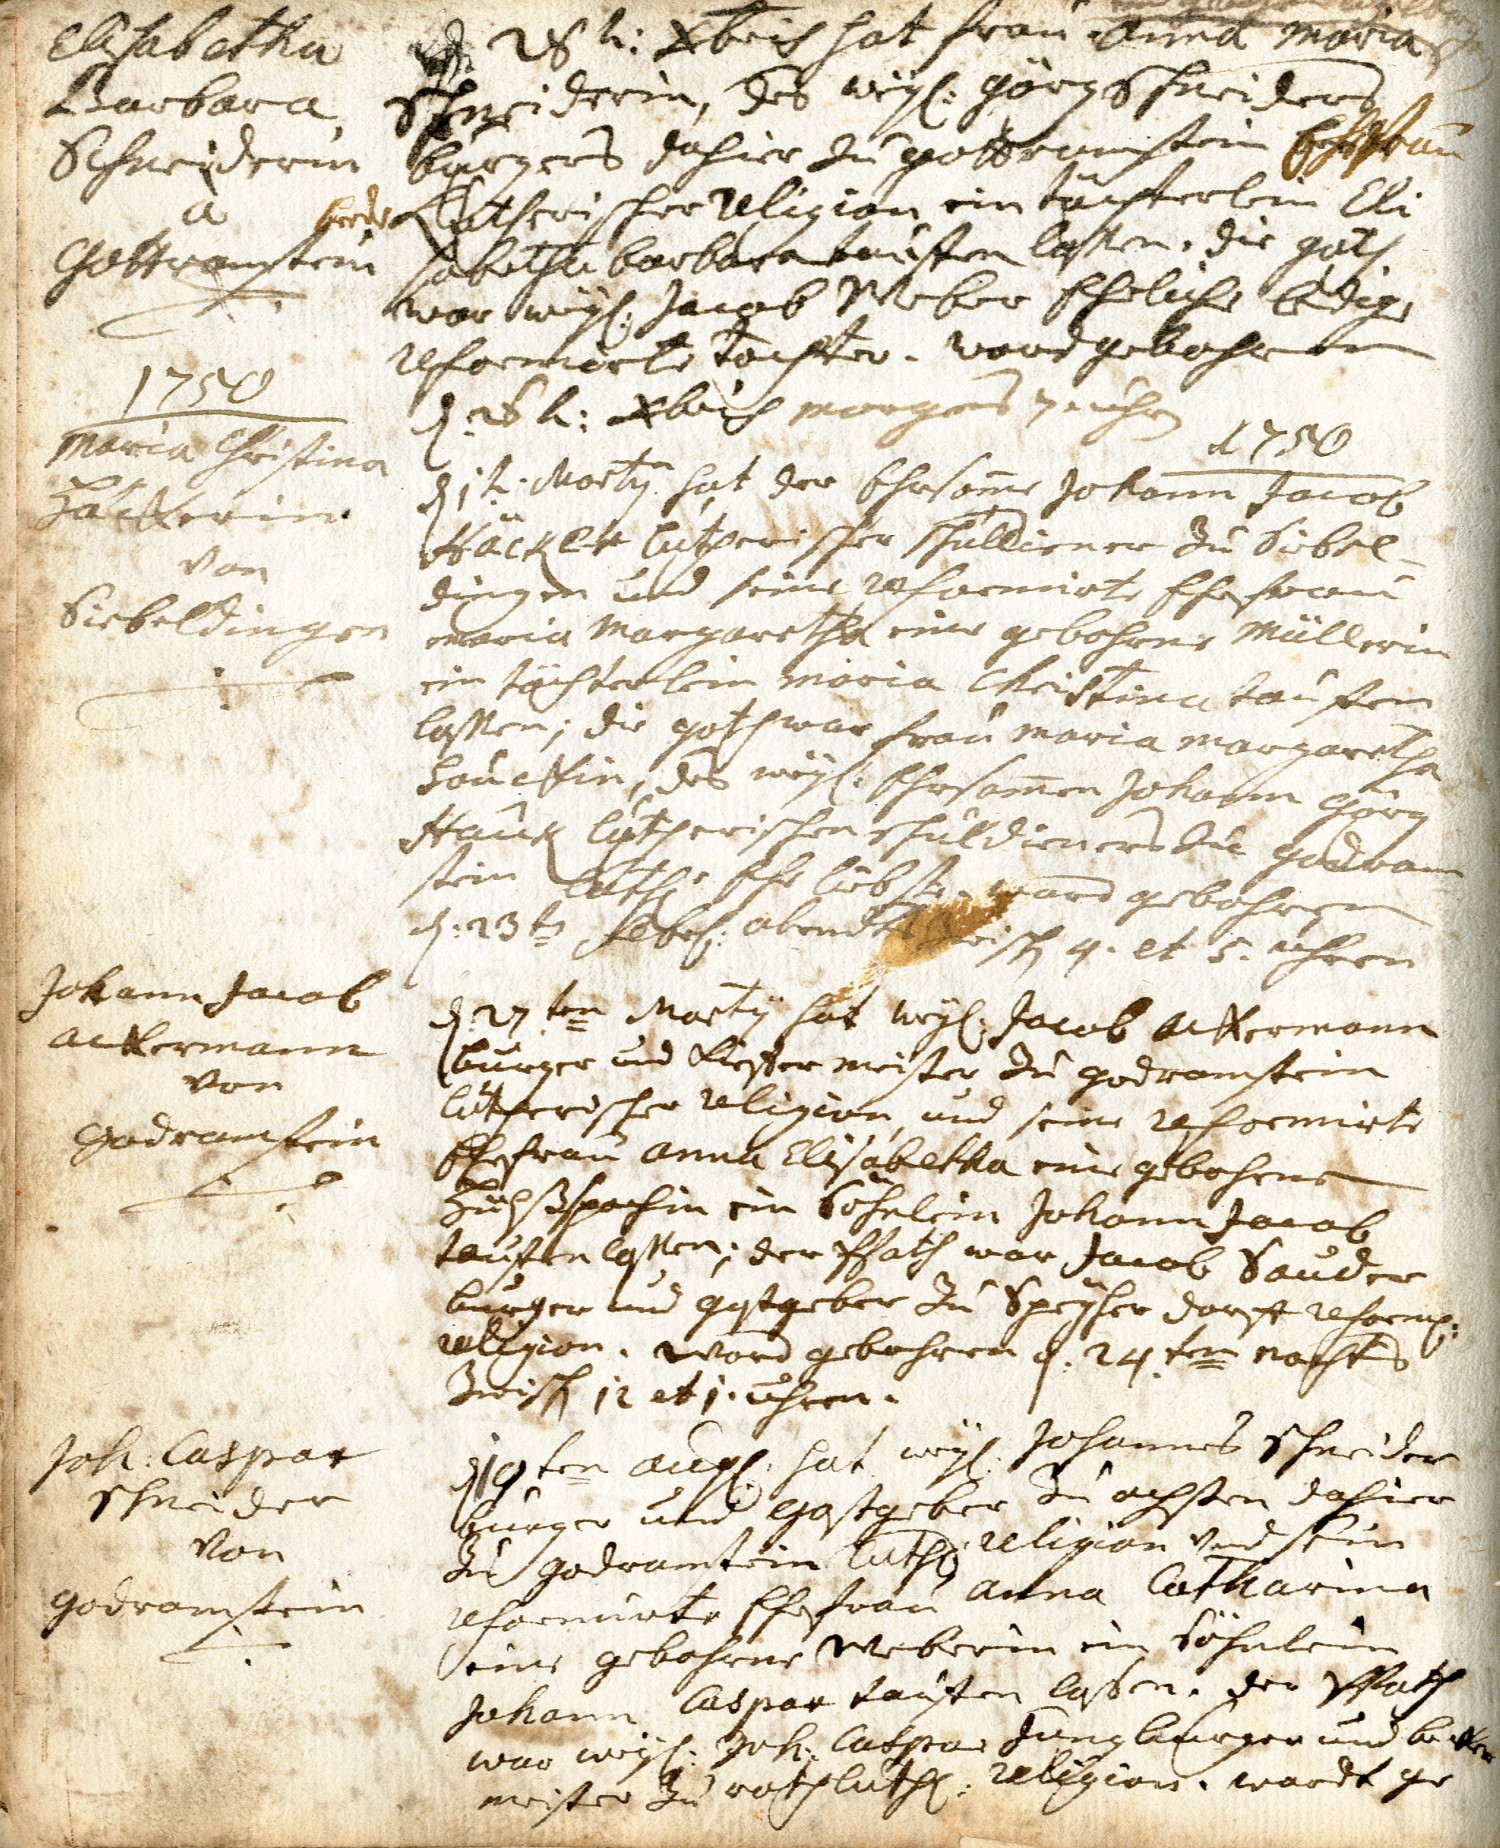 Elisabetha
Barbara
Schneiderin
a
Gottramstein
d. 28 t: Xbris hat frau Anna Maria
Schneiderin, des weyl: Görg Schneiders
burgers dahier zu gottramstein Ehefrau
beede Lutherischer religion ein töchterlein Eli
sabetha barbara tauffen laßen. die goth
war weyl: Jacob Weber Eheliche ledige
reformirte tochter. ward gebohren
d. 28 t: Xbris morgens 7 uhr
1750
Maria Christina
Häckerin
von
Siebeldingen
1750
d. 1 t. Marty hat der Ehrsame Johann Jacob
Häcker Lutherischer schuldiener zu Siebel-
dingen und seine reformirte Ehefrau
maria Margaretha eine gebohrne Müllerin
ein töchterlein maria Christina tauffen
laßen; die goth war frau maria margaretha
Hauckin, des weyl: Ehrsamen Johann Görg
Hauck Lutherischen schuldieners zu godram
stein luth: Ehe liebste. ward gebohren
d. 23 tn febr: abendts zwisch 4. et 5. uhren
Johann Jacob
Ackermann
von
godramstein
d. 27 ten Marty hat weyl: Jacob Ackermann
burger und Kieffer meister zu godramstein
Lutherischer religion, und seine reformirte
Ehefrau Anna Elisabetha eine gebohrne
ein Söhnlein Johann Jacob
tauffen laßen; der Pfath war Jacob Sauder
burger und gastgeber zu Speyer dorft reform:
religion. ward gebohren d. 24. ten nachts
zwisch 12 et 1. uhren.
Joh: Caspar
schneider
von
godramstein
d 19 ten aug: hat weyl: Johannes schneider
burger und gastgeber zu ochsen dahier
zu godramtein luth: religion und sein
reformirte Ehefrau anna Catharina
eine gebohrne Weberin ein Söhnlein
Johann Caspar tauffen laßen. der Pfath
war weyl: Joh: Caspar Jung burger und becker
meister zu roth luth: religion. wardt ge